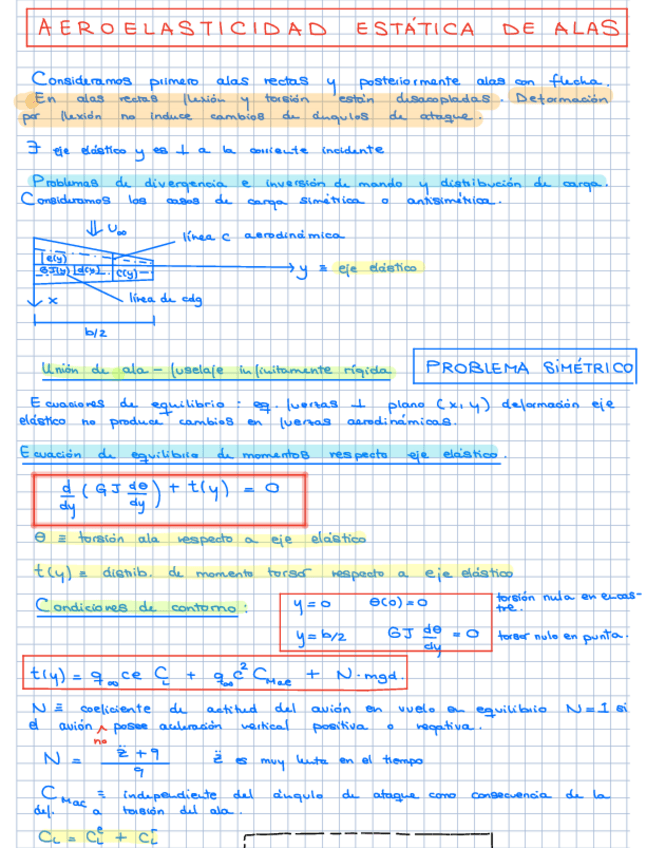 AEROELASTICIDAD ESTÁTICA DE ALAS
Consideramos primero alas rectas y posteriormente alas con flecha.
En alas rectas flexión y torsión están desacopladas. Deformación
por flexión no induce cambios de ángulos de ataque.
∃ eje elástico y es ⊥ a la corriente incidente
Problemas de divergencia e inversión de mando y distribución de carga.
Consideramos los casos de carga simétrica o antisimétrica.
U∞
línea c aerodinámica
e(y)
GJ(y) d(y) c(y)
y ≡ eje elástico
x
línea de cdg
b/2
Unión de ala - fuselaje infinitamente rígida
PROBLEMA SIMÉTRICO
Ecuaciones de equilibrio : eq. fuerzas ⊥ plano (x,y) deformación eje
elástico no produce cambios en fuerzas aerodinámicas.
Ecuación de equilibrio de momentos respecto eje elástico.
d/dy (GJ dθ/dy) + t(y) = 0
θ ≡ torsión ala respecto a eje elástico
t(y) ≡ distrib. de momento torsor respecto a eje elástico
Condiciones de contorno:
y=0 θ(0)=0
torsión nula en empos-
tre.
y=b/2 GJ dθ/dy = 0
torsor nulo en punta.
t(y) = q∞ c e C_L + q∞ c² C_Mac + N·mgd.
N ≡ coeficiente de actitud del avión en vuelo en equilibrio N=1 si
el avión no posee aceleración vertical positiva o negativa.
N = (z̈ + g)/g z̈ es muy lenta en el tiempo
C_Mac ≡ independiente del ángulo de ataque como consecuencia de la
def. a torsión del ala.
C_L = C_L^e + C_L^r